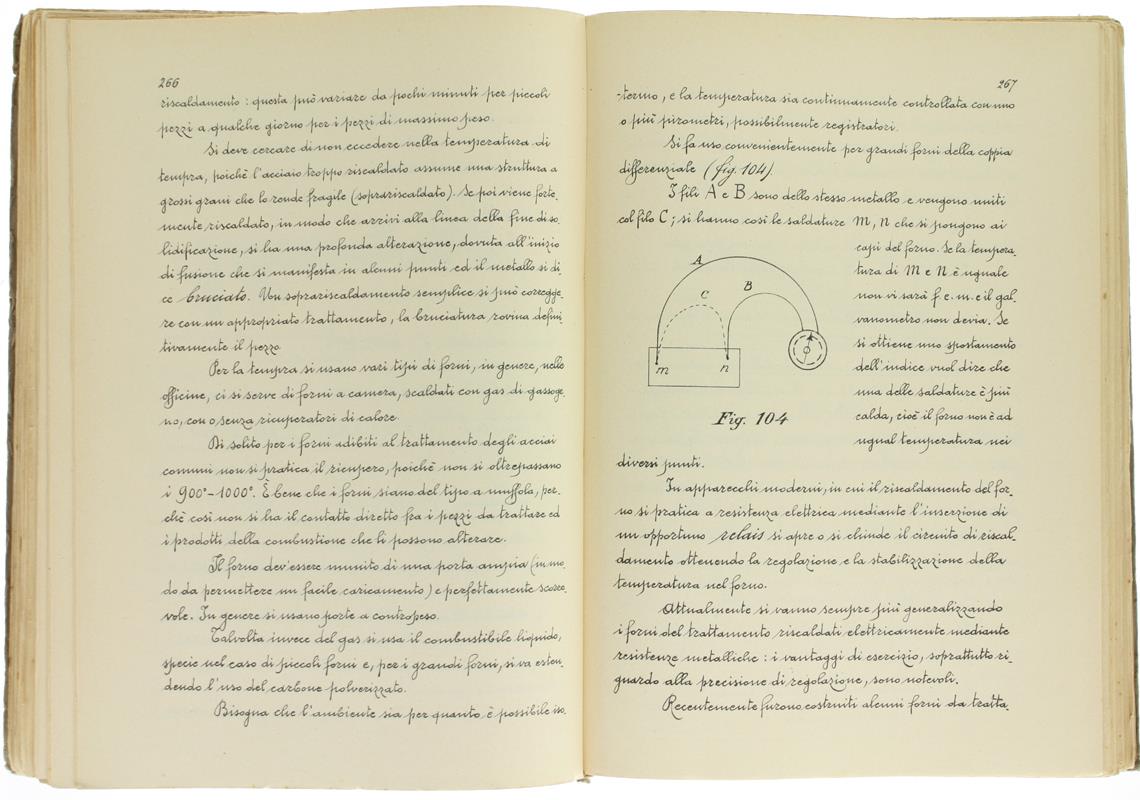 266
riscaldamento: questa può variare da pochi minuti per piccoli
pezzi a qualche giorno per i pezzi di massimo peso.
Si deve cercare di non eccedere nella temperatura di
tempra, poichè l'acciaio troppo riscaldato assume una struttura a
grossi grani che lo rende fragile (soprariscaldato). Se poi viene forte-
mente riscaldato, in modo che arrivi alla linea della fine di so
lidificazione, si ha una profonda alterazione, dovuta all'inizio
di fusione che si manifesta in alcuni punti ed il metallo si di-
ce bruciato. Un soprariscaldamento semplice si può corregge-
re con un appropriato trattamento, la bruciatura rovina defini-
tivamente il pezzo
Per la tempra si usano vari tipi di forni, in genere, nelle
officine, ci si serve di forni a camera, scaldati con gas di gassoge-
no, con o senza ricuperatori di calore.
Di solito per i forni adibiti al trattamento degli acciai
comuni non si pratica il ricupero, poichè non si oltrepassano
i 900°-1000°. È bene che i forni siano del tipo a muffola, per-
chè così non si ha il contatto diretto fra i pezzi da trattare ed
i prodotti della combustione che li possono alterare.
Il forno dev'essere munito di una porta ampia (in mo-
do da permettere un facile caricamento) e perfettamente scorre-
vole. In genere si usano porte a contropeso.
Talvolta invece del gas si usa il combustibile liquido,
specie nel caso di piccoli forni e, per i grandi forni, si va esten-
dendo l'uso del carbone polverizzato.
Bisogna che l'ambiente sia per quanto è possibile iso-
267
-termo, e la temperatura sia continuamente controllata con uno
o più pirometri, possibilmente registratori.
Si fa uso convenientemente per grandi forni della coppia
differenziale (fig. 104).
I fili A e B sono dello stesso metallo e vengono uniti
col filo C; si hanno così le saldature M, n che si pongono ai
capi del forno. Se la tempera-
tura di M e N è uguale
non vi sarà f. e. m. e il gal-
vanometro non devia. Se
si ottiene uno spostamento
dell'indice vuol dire che
una delle saldature è più
calda, cioè il forno non è ad
ugual temperatura nei
A
C
B
m
n
Fig. 104
diversi punti.
In apparecchi moderni, in cui il riscaldamento del for-
no si pratica a resistenza elettrica mediante l'inserzione di
un opportuno relais si apre o si chiude il circuito di riscal-
damento ottenendo la regolazione e la stabilizzazione della
temperatura nel forno.
Attualmente si vanno sempre più generalizzando
i forni del trattamento riscaldati elettricamente mediante
resistenze metalliche: i vantaggi di esercizio, soprattutto ri-
guardo alla precisione di regolazione, sono notevoli.
Recentemente furono costruiti alcuni forni da tratta-